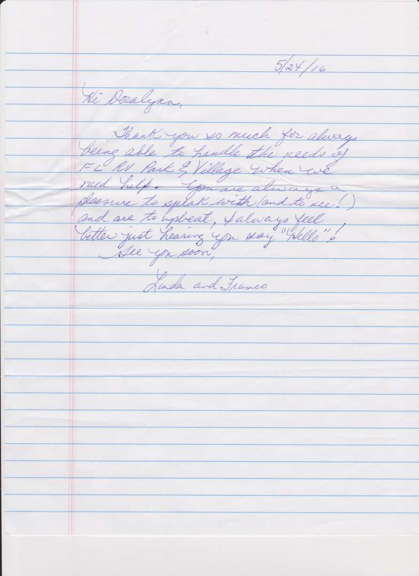 5/24/16
Hi Doralynn,
Thank you so much for always
being able to handle the needs of
F L Rv Park & Village when we
need help. You are always a
pleasure to speak with (and to see!)
and are so upbeat, I always feel
better just hearing you say "Hello"!
See you soon,
Linda and Franco